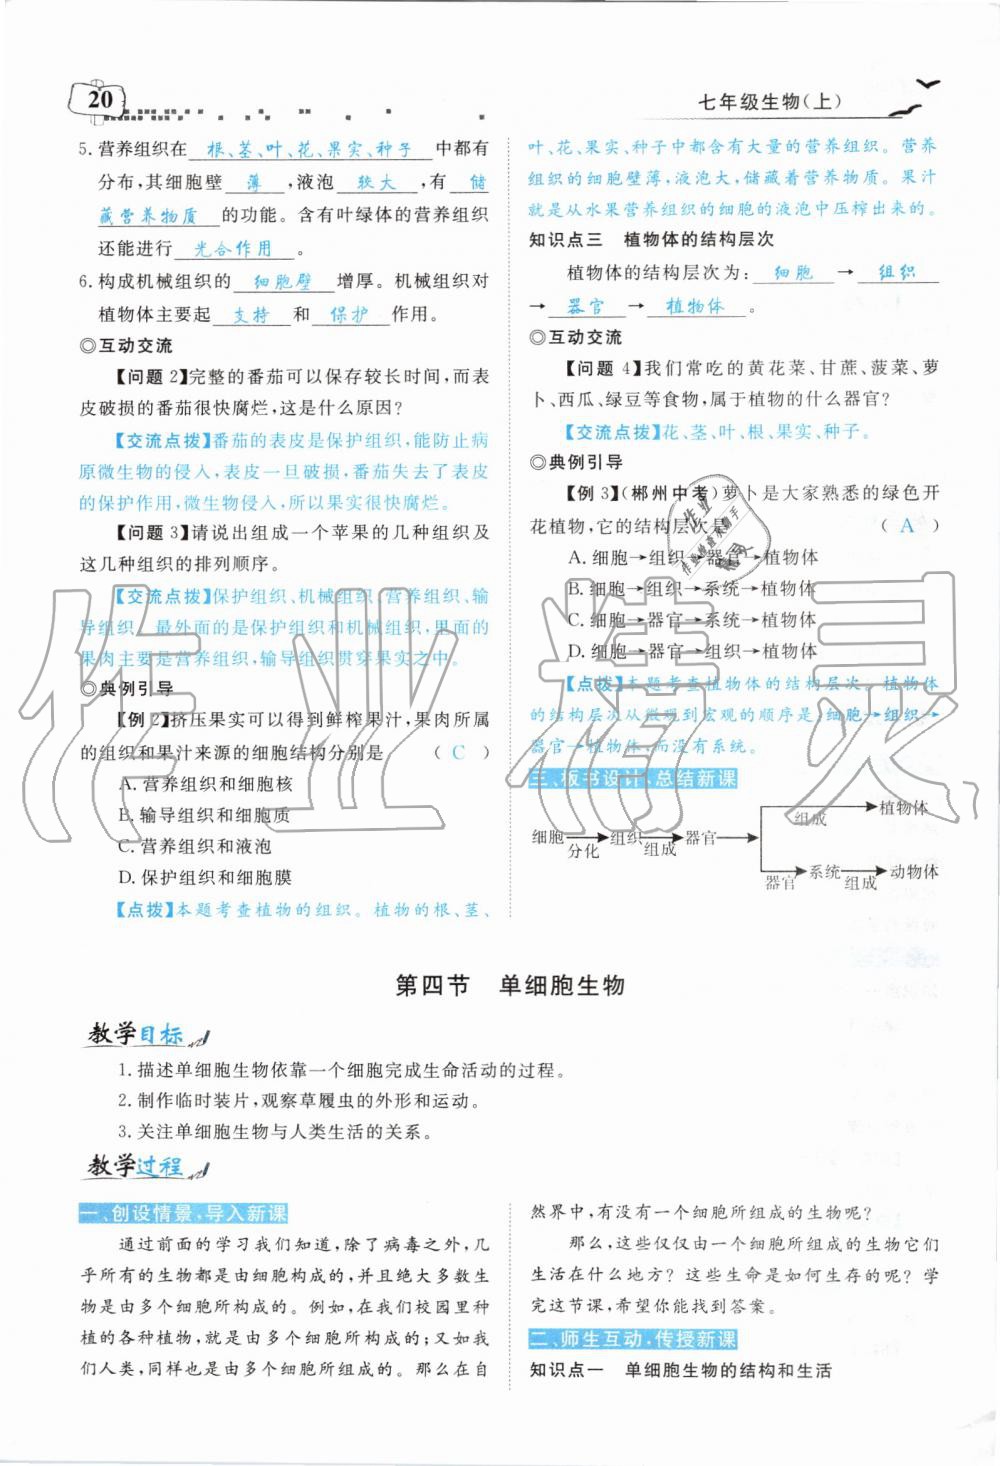 20
七年级生物(上)
5. 营养组织在 根、茎、叶、花、果实、种子 中都有
分布,其细胞壁 薄 ,液泡 较大 ,有 储
藏营养物质 的功能。含有叶绿体的营养组织
还能进行 光合作用 。
6. 构成机械组织的 细胞壁 增厚。机械组织对
植物体主要起 支持 和 保护 作用。
◎互动交流
【问题 2】完整的番茄可以保存较长时间,而表
皮破损的番茄很快腐烂,这是什么原因?
【交流点拨】番茄的表皮是保护组织,能防止病
原微生物的侵入,表皮一旦破损,番茄失去了表皮
的保护作用,微生物侵入,所以果实很快腐烂。
【问题 3】请说出组成一个苹果的几种组织及
这几种组织的排列顺序。
【交流点拨】保护组织、机械组织、营养组织、输
导组织。最外面的是保护组织和机械组织,里面的
果肉主要是营养组织,输导组织贯穿果实之中。
◎典例引导
【例 2】挤压果实可以得到鲜榨果汁,果肉所属
的组织和果汁来源的细胞结构分别是 ( C )
A. 营养组织和细胞核
B. 输导组织和细胞质
C. 营养组织和液泡
D. 保护组织和细胞膜
【点拨】本题考查植物的组织。植物的根、茎、
叶、花、果实、种子中都含有大量的营养组织。营养
组织的细胞壁薄,液泡大,储藏着营养物质。果汁
就是从水果营养组织的细胞的液泡中压榨出来的。
知识点三 植物体的结构层次
植物体的结构层次为: 细胞 → 组织
→ 器官 → 植物体 。
◎互动交流
【问题 4】我们常吃的黄花菜、甘蔗、菠菜、萝
卜、西瓜、绿豆等食物,属于植物的什么器官?
【交流点拨】花、茎、叶、根、果实、种子。
◎典例引导
【例 3】(郴州中考)萝卜是大家熟悉的绿色开
花植物,它的结构层次是 ( A )
A. 细胞→组织→器官→植物体
B. 细胞→组织→系统→植物体
C. 细胞→器官→系统→植物体
D. 细胞→器官→组织→植物体
【点拨】本题考查植物体的结构层次。植物体
的结构层次从微观到宏观的顺序是:细胞→组织→
器官→植物体,而没有系统。
三、板书设计、总结新课
细胞 分化 组织 组成 器官 组成 植物体
器官 系统 组成 动物体
第四节 单细胞生物
教学目标
1. 描述单细胞生物依靠一个细胞完成生命活动的过程。
2. 制作临时装片,观察草履虫的外形和运动。
3. 关注单细胞生物与人类生活的关系。
教学过程
一、创设情景,导入新课
通过前面的学习我们知道,除了病毒之外,几
乎所有的生物都是由细胞构成的,并且绝大多数生
物是由多个细胞所构成的。例如,在我们校园里种
植的各种植物,就是由多个细胞所构成的;又如我
们人类,同样也是由多个细胞所组成的。那么在自
然界中,有没有一个细胞所组成的生物呢?
那么,这些仅仅由一个细胞所组成的生物它们
生活在什么地方?这些生命是如何生存的呢?学
完这节课,希望你能找到答案。
二、师生互动,传授新课
知识点一 单细胞生物的结构和生活
作业精灵